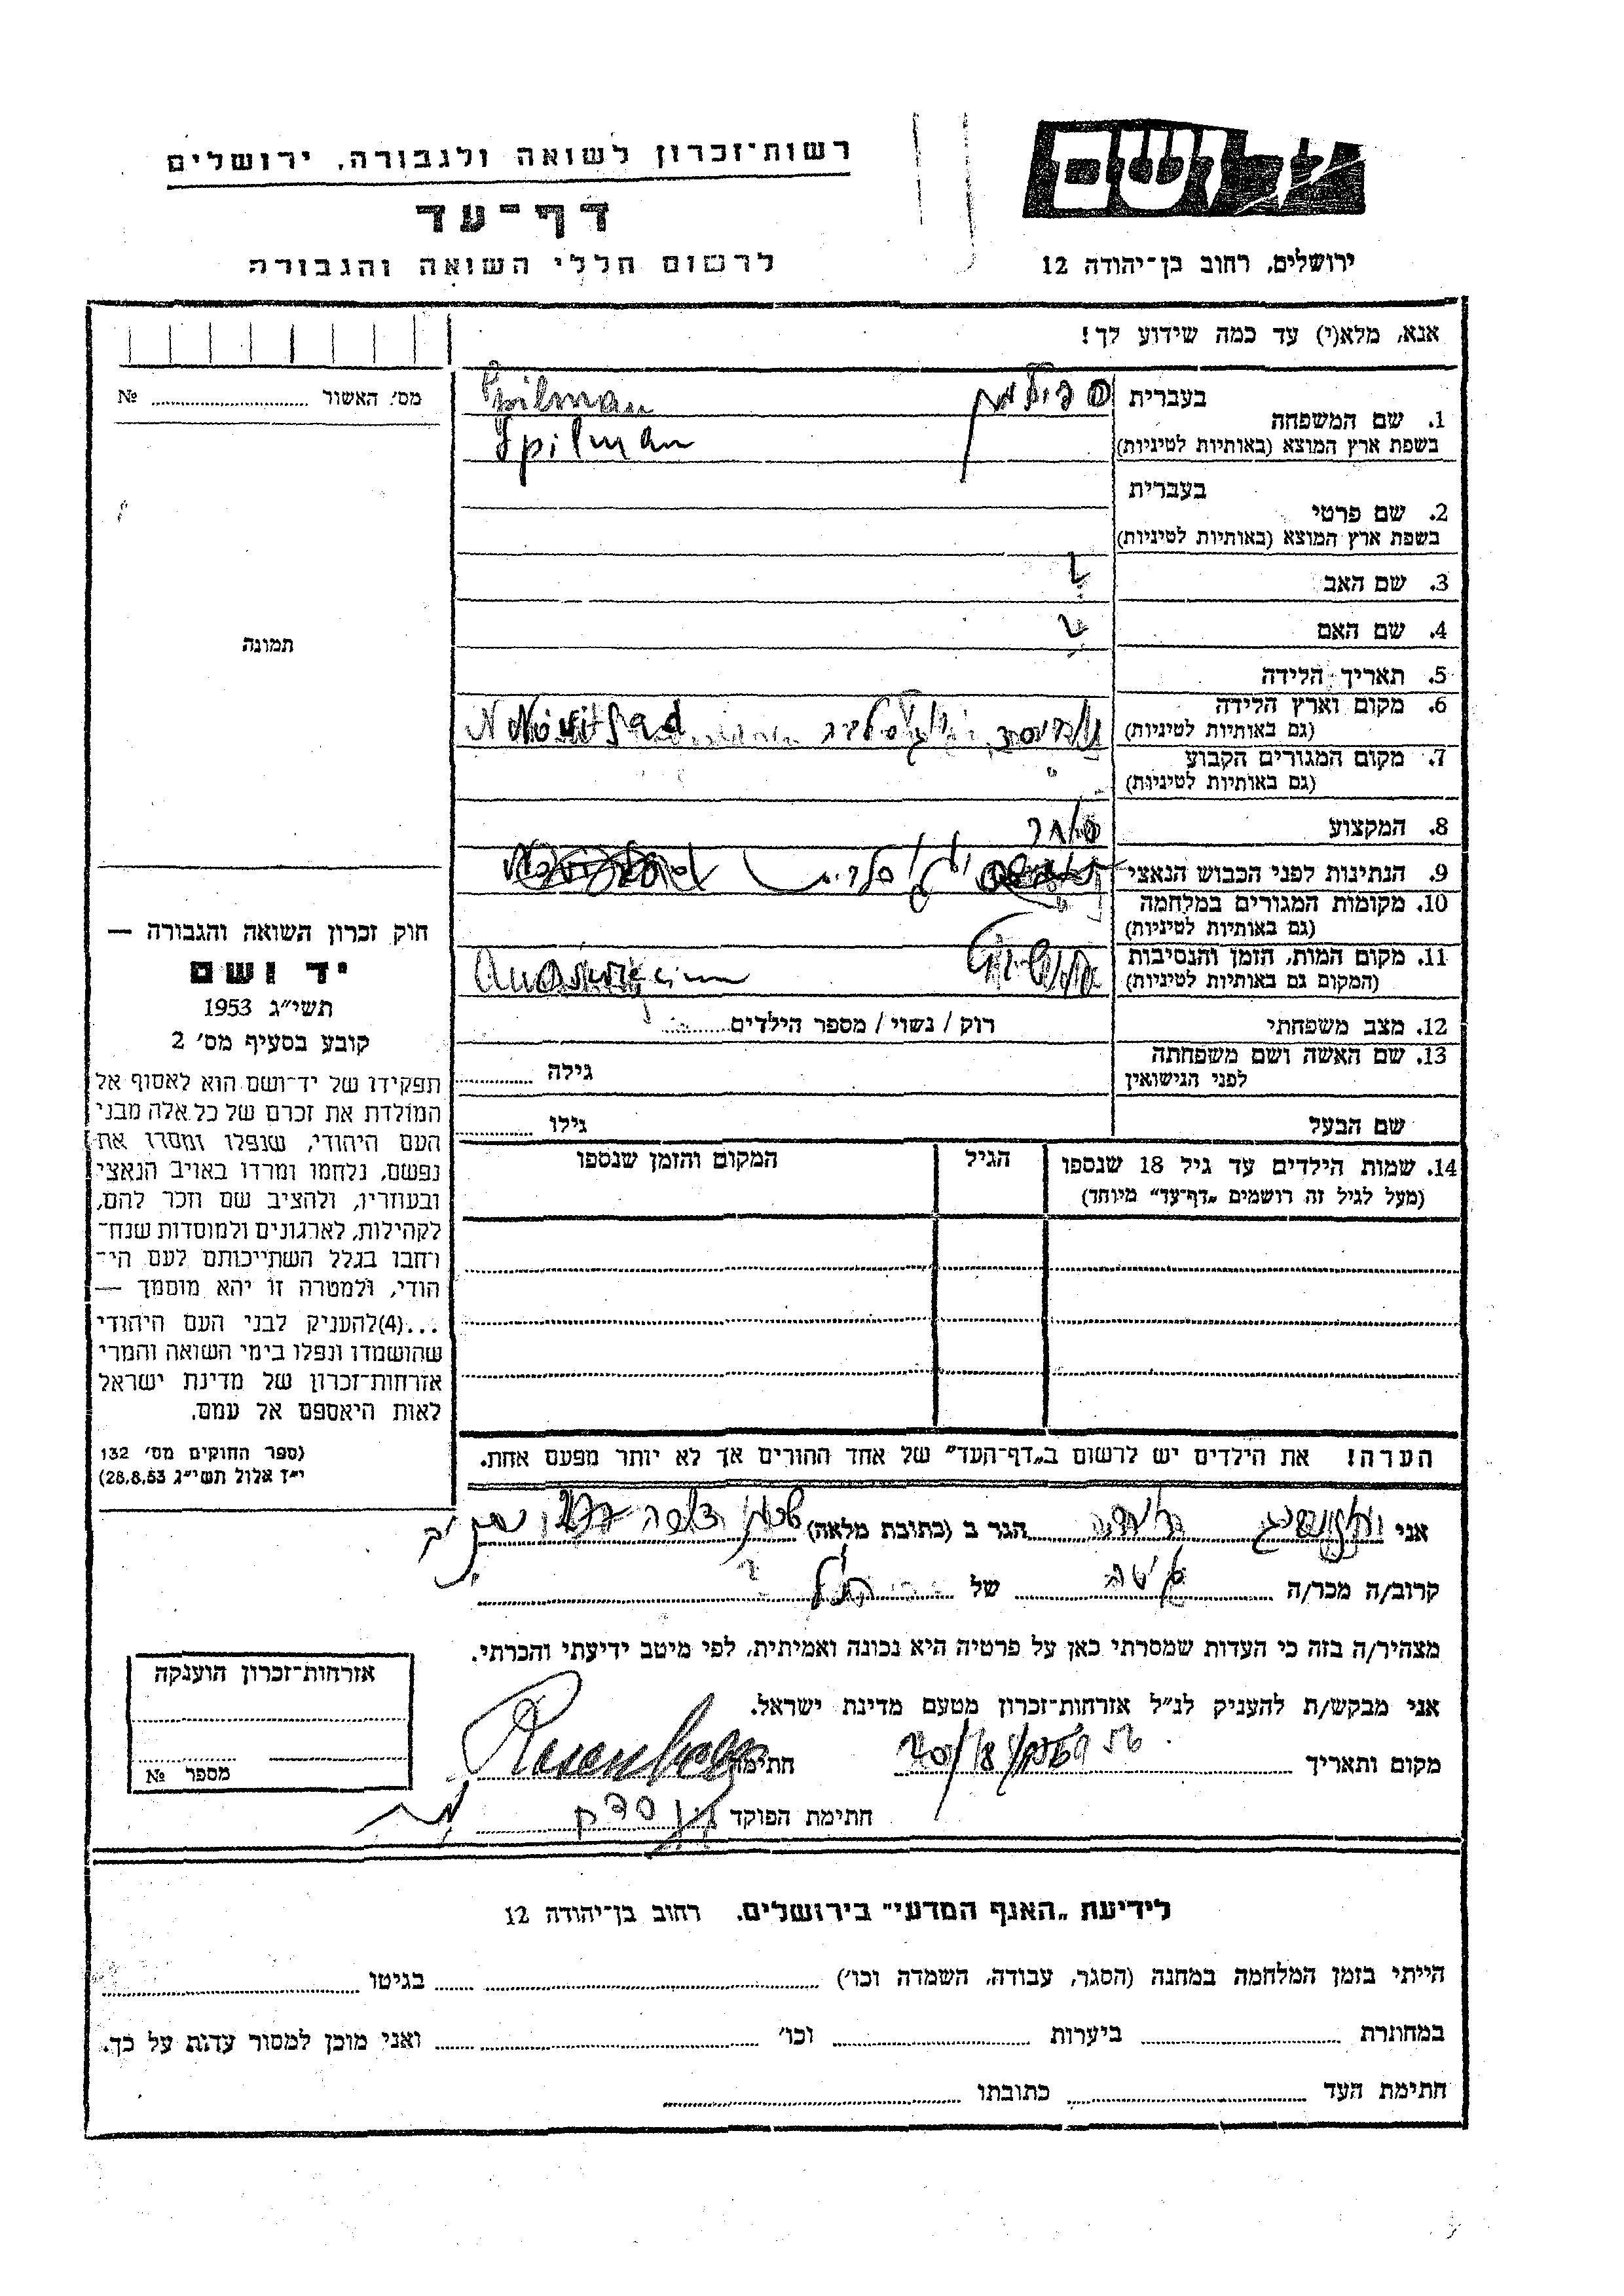 יד ושם
רשות־זכרון לשואה ולגבורה, ירושלים
דף־עד
לרשום חללי השואה והגבורה
ירושלים, רחוב בן־יהודה 12
אנא, מלא(י) עד כמה שידוע לך!
מס׳ האשור № 
1. שם המשפחה
בעברית
ספילמן Spilman
בשפת ארץ המוצא (באותיות לטיניות)
Spilman
2. שם פרטי
בעברית
בשפת ארץ המוצא (באותיות לטיניות)
3. שם האב ?
4. שם האם ?
5. תאריך הלידה
6. מקום וארץ הלידה
(גם באותיות לטיניות)
Novitsad
7. מקום המגורים הקבוע
(גם באותיות לטיניות)
8. המקצוע סוחר
9. הנתינות לפני הכבוש הנאצי
10. מקומות המגורים במלחמה
(גם באותיות לטיניות)
11. מקום המות, הזמן והנסיבות
(המקום גם באותיות לטיניות)
12. מצב משפחתי רוק / נשוי / מספר הילדים
13. שם האשה ושם משפחתה
לפני הנישואין
גילה
שם הבעל גילו
14. שמות הילדים עד גיל 18 שנספו
(מעל לגיל זה רושמים „דף־עד״ מיוחד)
הגיל
המקום והזמן שנספו
תמונה
חוק זכרון השואה והגבורה —
יד ושם
תשי״ג 1953
קובע בסעיף מס׳ 2
תפקידו של יד־ושם הוא לאסוף אל
המולדת את זכרם של כל אלה מבני
העם היהודי, שנפלו ומסרו את
נפשם, נלחמו ומרדו באויב הנאצי
ובעוזריו, ולהציב שם וזכר להם,
לקהילות, לארגונים ולמוסדות שנח־
רחבו בגלל השתייכותם לעם הי־
הודי, ולמטרה זו יהא מוסמך —
...(4)להעניק לבני העם היהודי
שהושמדו ונפלו בימי השואה והמרי
אזרחות־זכרון של מדינת ישראל
לאות היאספם אל עמם.
(ספר החוקים מס׳ 132
י״ז אלול תשי״ג 28.8.53)
הערה! את הילדים יש לרשום ב„דף־העד״ של אחד ההורים אך לא יותר מפעם אחת.
אני הגר ב (כתובת מלאה)
קרוב/ה מכר/ה של
מצהיר/ה בזה כי העדות שמסרתי כאן על פרטיה היא נכונה ואמיתית, לפי מיטב ידיעתי והכרתי.
אני מבקש/ת להעניק לנ״ל אזרחות־זכרון מטעם מדינת ישראל.
מקום ותאריך חתימה Rosenberg
חתימת הפוקד
אזרחות־זכרון הוענקה
מספר №
לידיעת „האגף המדעי״ בירושלים. רחוב בן־יהודה 12
הייתי בזמן המלחמה במחנה (הסגר, עבודה, השמדה וכו׳) בגיטו
במחתרת ביערות וכו׳ ואני מוכן למסור עדות על כך.
חתימת העד כתובתו